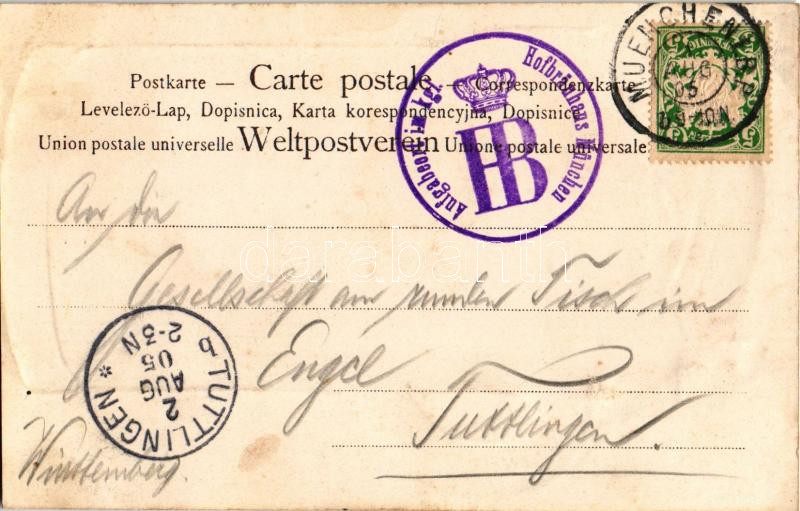 Postkarte — Carte postale — Correspondenzkarte
Levelezö-Lap, Dopisnica, Karta korespondencyjna, Dopisnice
Union postale universelle Weltpostverein Unione postale universale
Aufgabeort im kgl. Hofbräuhaus München
HB
MUENCHEN
AUG
05
An die
Gesellschaft am runden Tisch im
Engel
Tuttlingen.
Württemberg.
TUTTLINGEN *
2
AUG
05
2-3N
darabanth